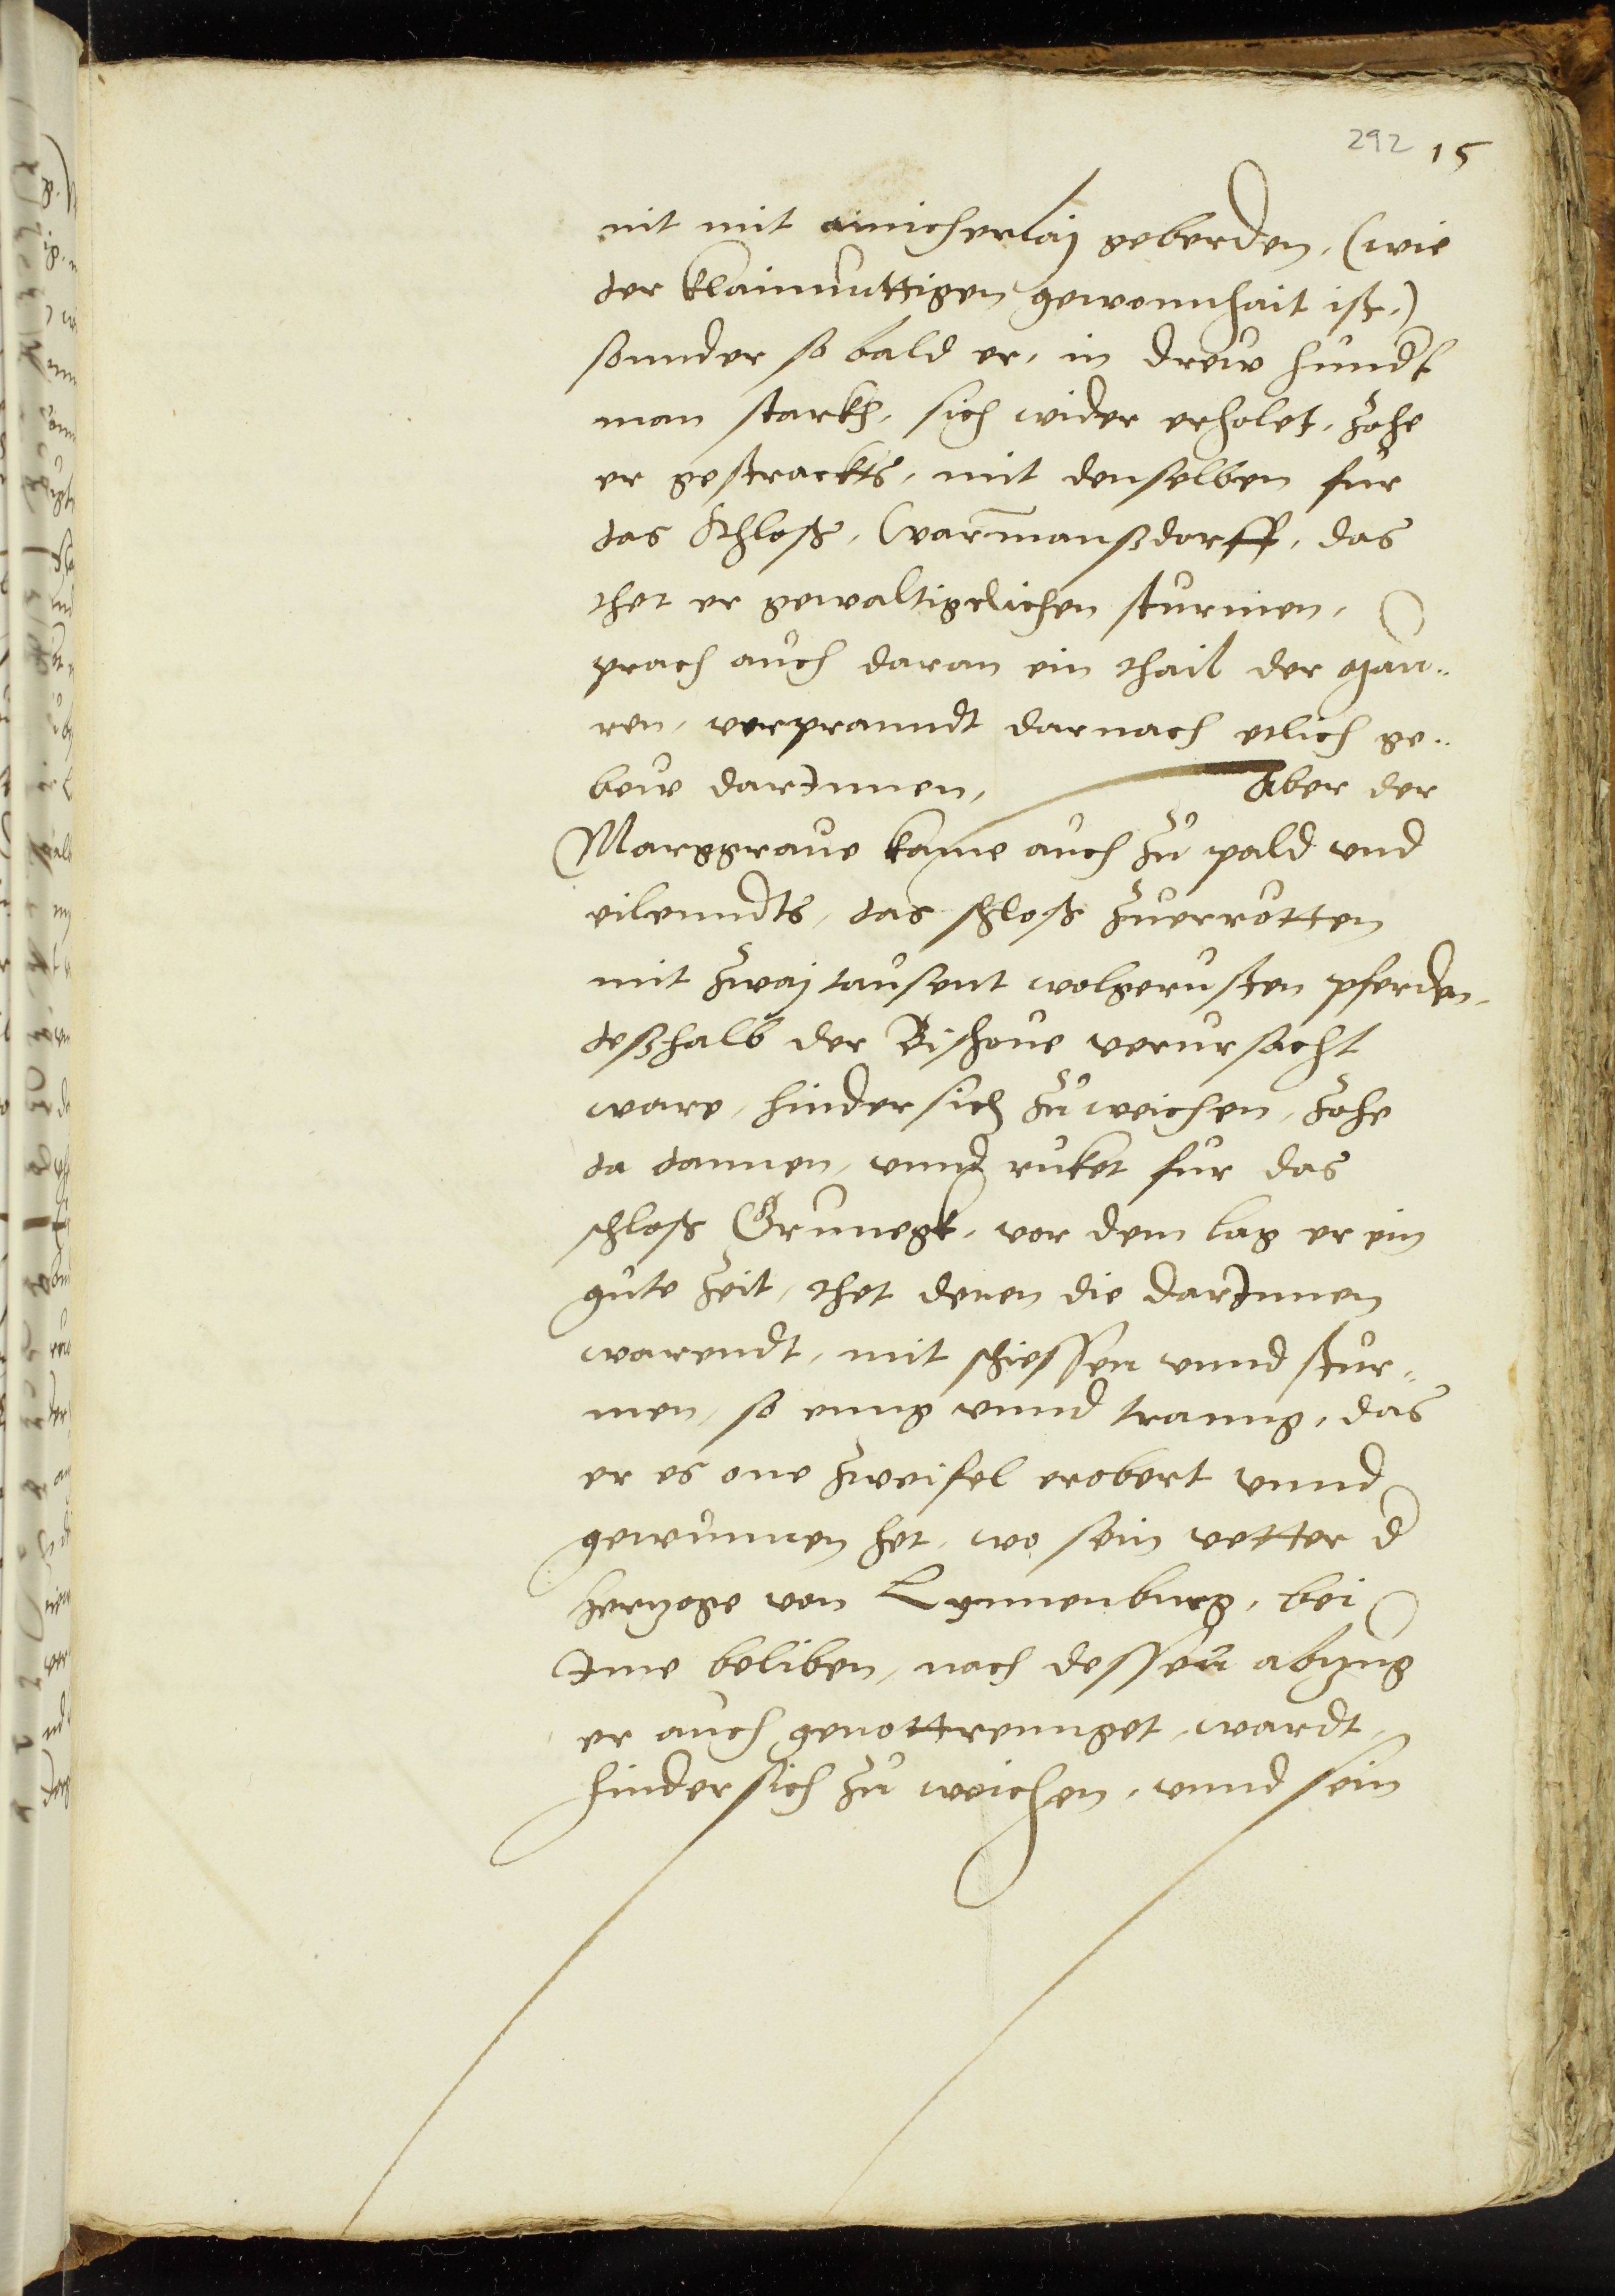 292 15
nit mit ainicherlaj geberden, (wie
der klainmuttigen gewonnhait ist,)
sonnder so bald er, in drew hundt
man starkh, sich wider erholet, zohe
er gestrackts, mit denselben fur
das Schloß, Warmanßdorff, das
thet er gewaltigclichen sturmen,
prach auch daran ein thail der Mau-
ren, verpranndt darnach etlich ge-
bew darJnnen, Aber der
Marggraue kame auch zu pald vnd
eilenndts, das schloß zuerrotten
mit zwaj tausent wolgerusten pferden,
deßhalb der Bishoue verursacht
ware, hinder sich zu weichen, zohe
da dannen, vnnd ruket fur das
schloß Grunegk, vor dem lag er ein
gute zeit, thet denen die darJnnen
warendt, mit schiessen vnnd stur-
men, so enng vnnd tranng, das
er es one zweifel erobert vnnd
gewunnen het, wo sein vetter d
Hertzoge von Lynnenburg, bei
Jme beliben, nach dessen abzug
er auch genottrennget, wardt,
hinder sich zu weichen, vnnd sein